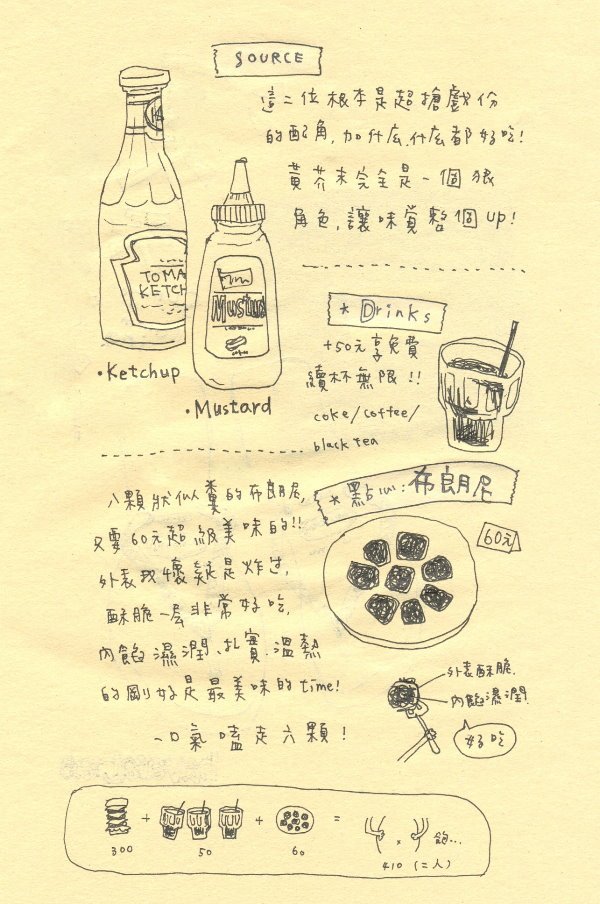 SOURCE
這二位根本是超搶戲份
的配角,加什麼,什麼都好吃!
黃芥末完全是一個狠
角色,讓味覺整個up!
TOMA
KETCH
Mustard
•Ketchup
•Mustard
* Drinks
+50元享免費
續杯無限!!
coke/coffee/
black tea
* 點心:布朗尼
60元
八顆狀似糞的布朗尼,
只要60元超級美味的!!
外表我懷疑是炸过,
酥脆一层非常好吃,
內餡濕潤、扎實.溫熱
的剛好是最美味的time!
一口氣嗑走六顆!
外表酥脆.
內餡濕潤.
好吃
+ + = x 飽...
300 50 60 410 (二人)